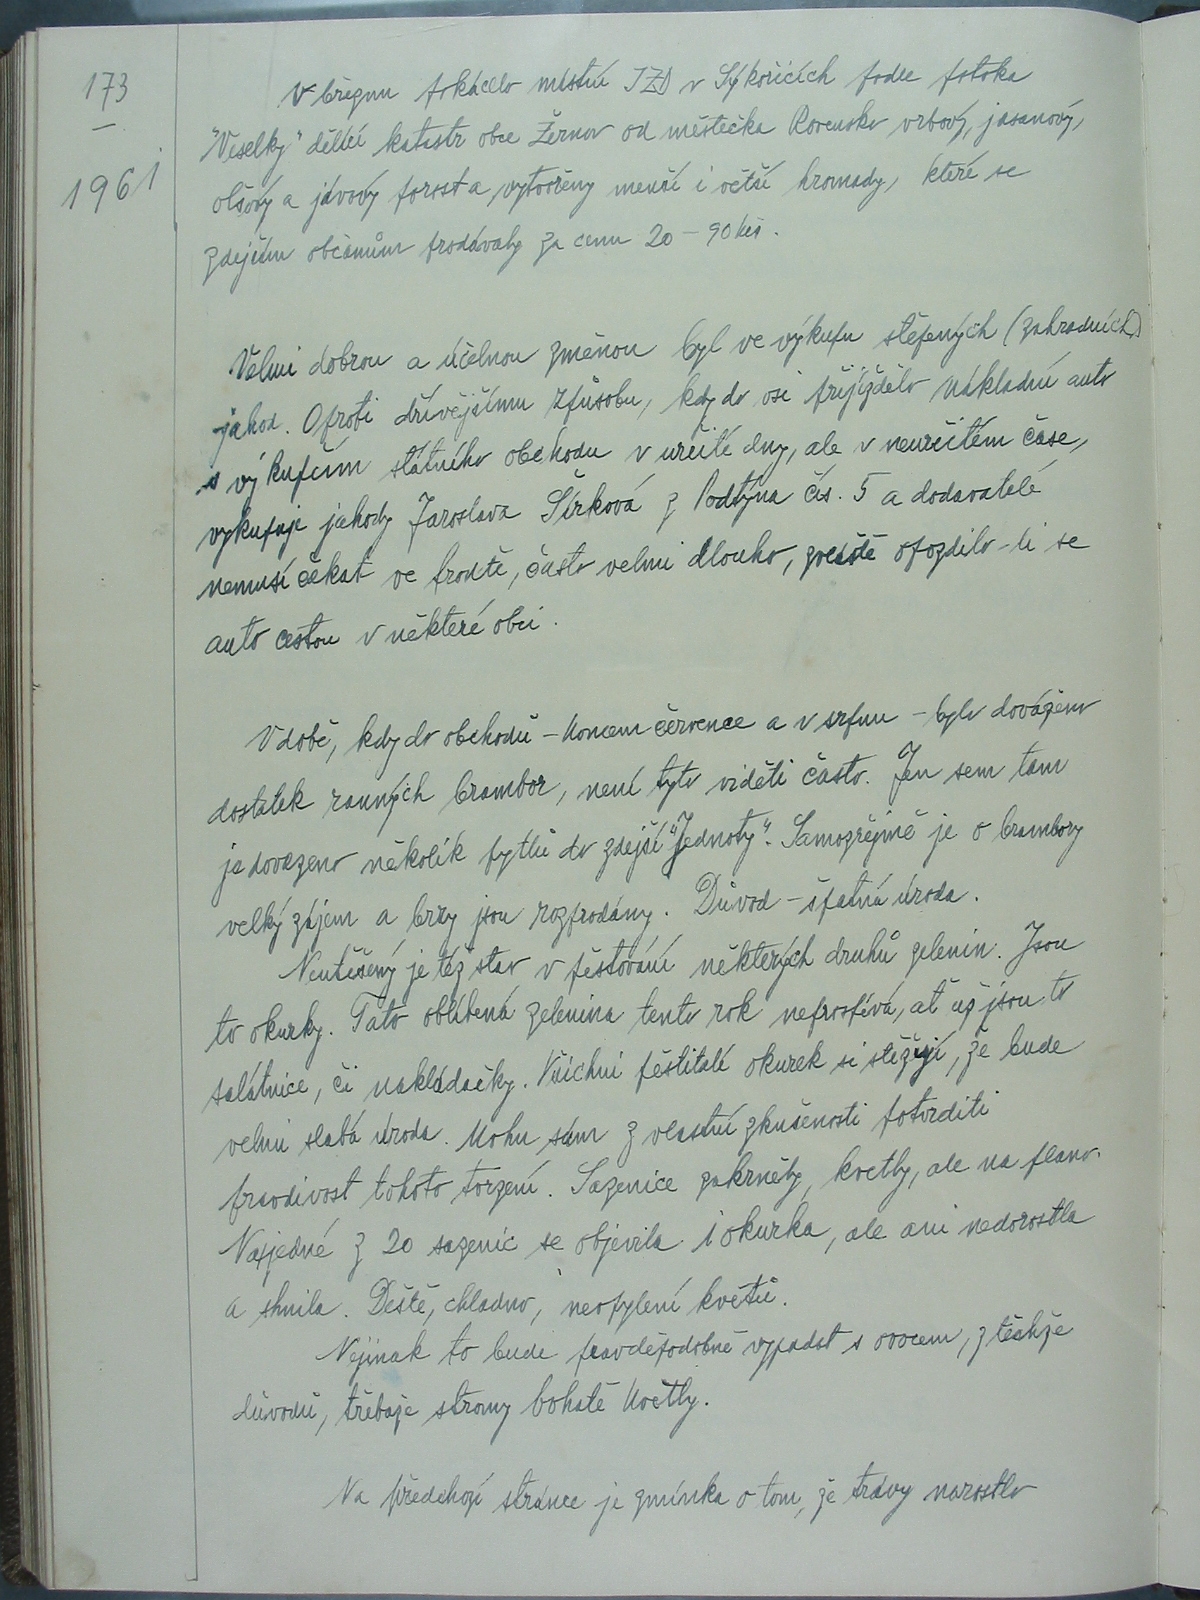 173
—
1961
V březnu pokácelo místní JZD v Sýkořicích podle potoka
"Veselky" dělící katastr obce Žernov od městečka Rovensko vrbový, jasanový,
olšový a jívový porost a vytvořeny menší i větší hromady, které se
zdejším občanům prodávaly za cenu 20 – 90 kčs.
Velmi dobrou a účelnou změnou byl ve výkupu štěpených (zahradních)
jahod. Oproti dřívějšímu způsobu, kdy do vsi přijíždělo nákladní auto
s výkupčím státního obchodu v určité dny, ale v neurčitém čase,
vykupuje jahody Jaroslava Šírková z Podtýna čís. 5 a dodavatelé
nemusí čekat ve frontě, často velmi dlouho, zvláště opozdilo-li se
auto cestou v některé obci.
V době, kdy do obchodů – koncem července a v srpnu – bylo dováženo
dostatek ranných brambor, není tyto viděti často. Jen sem tam
je dovezeno několik pytlů do zdejší "Jednoty". Samozřejmě je o brambory
velký zájem a brzy jsou rozprodány. Důvod – špatná úroda.
Neutěšený je též stav v pěstování některých druhů zelenin. Jsou
to okurky. Tato oblíbená zelenina tento rok neprospívá, ať už jsou to
salátnice, či nakládačky. Všichni pěstitelé okurek si stěžují, že bude
velmi slabá úroda. Mohu sám z vlastní zkušenosti potvrditi
pravdivost tohoto tvrzení. Sazenice zakrněly, kvetly, ale na plano.
Na jedné z 20 sazenic se objevila 1 okurka, ale ani nedorostla
a shnila. Deště, chladno, neopylení květů.
Nejinak to bude pravděpodobně vypadat s ovocem, z těchže
důvodů, třebaže stromy bohatě kvetly.
Na předchozí stránce je zmínka o tom, že trávy narostlo